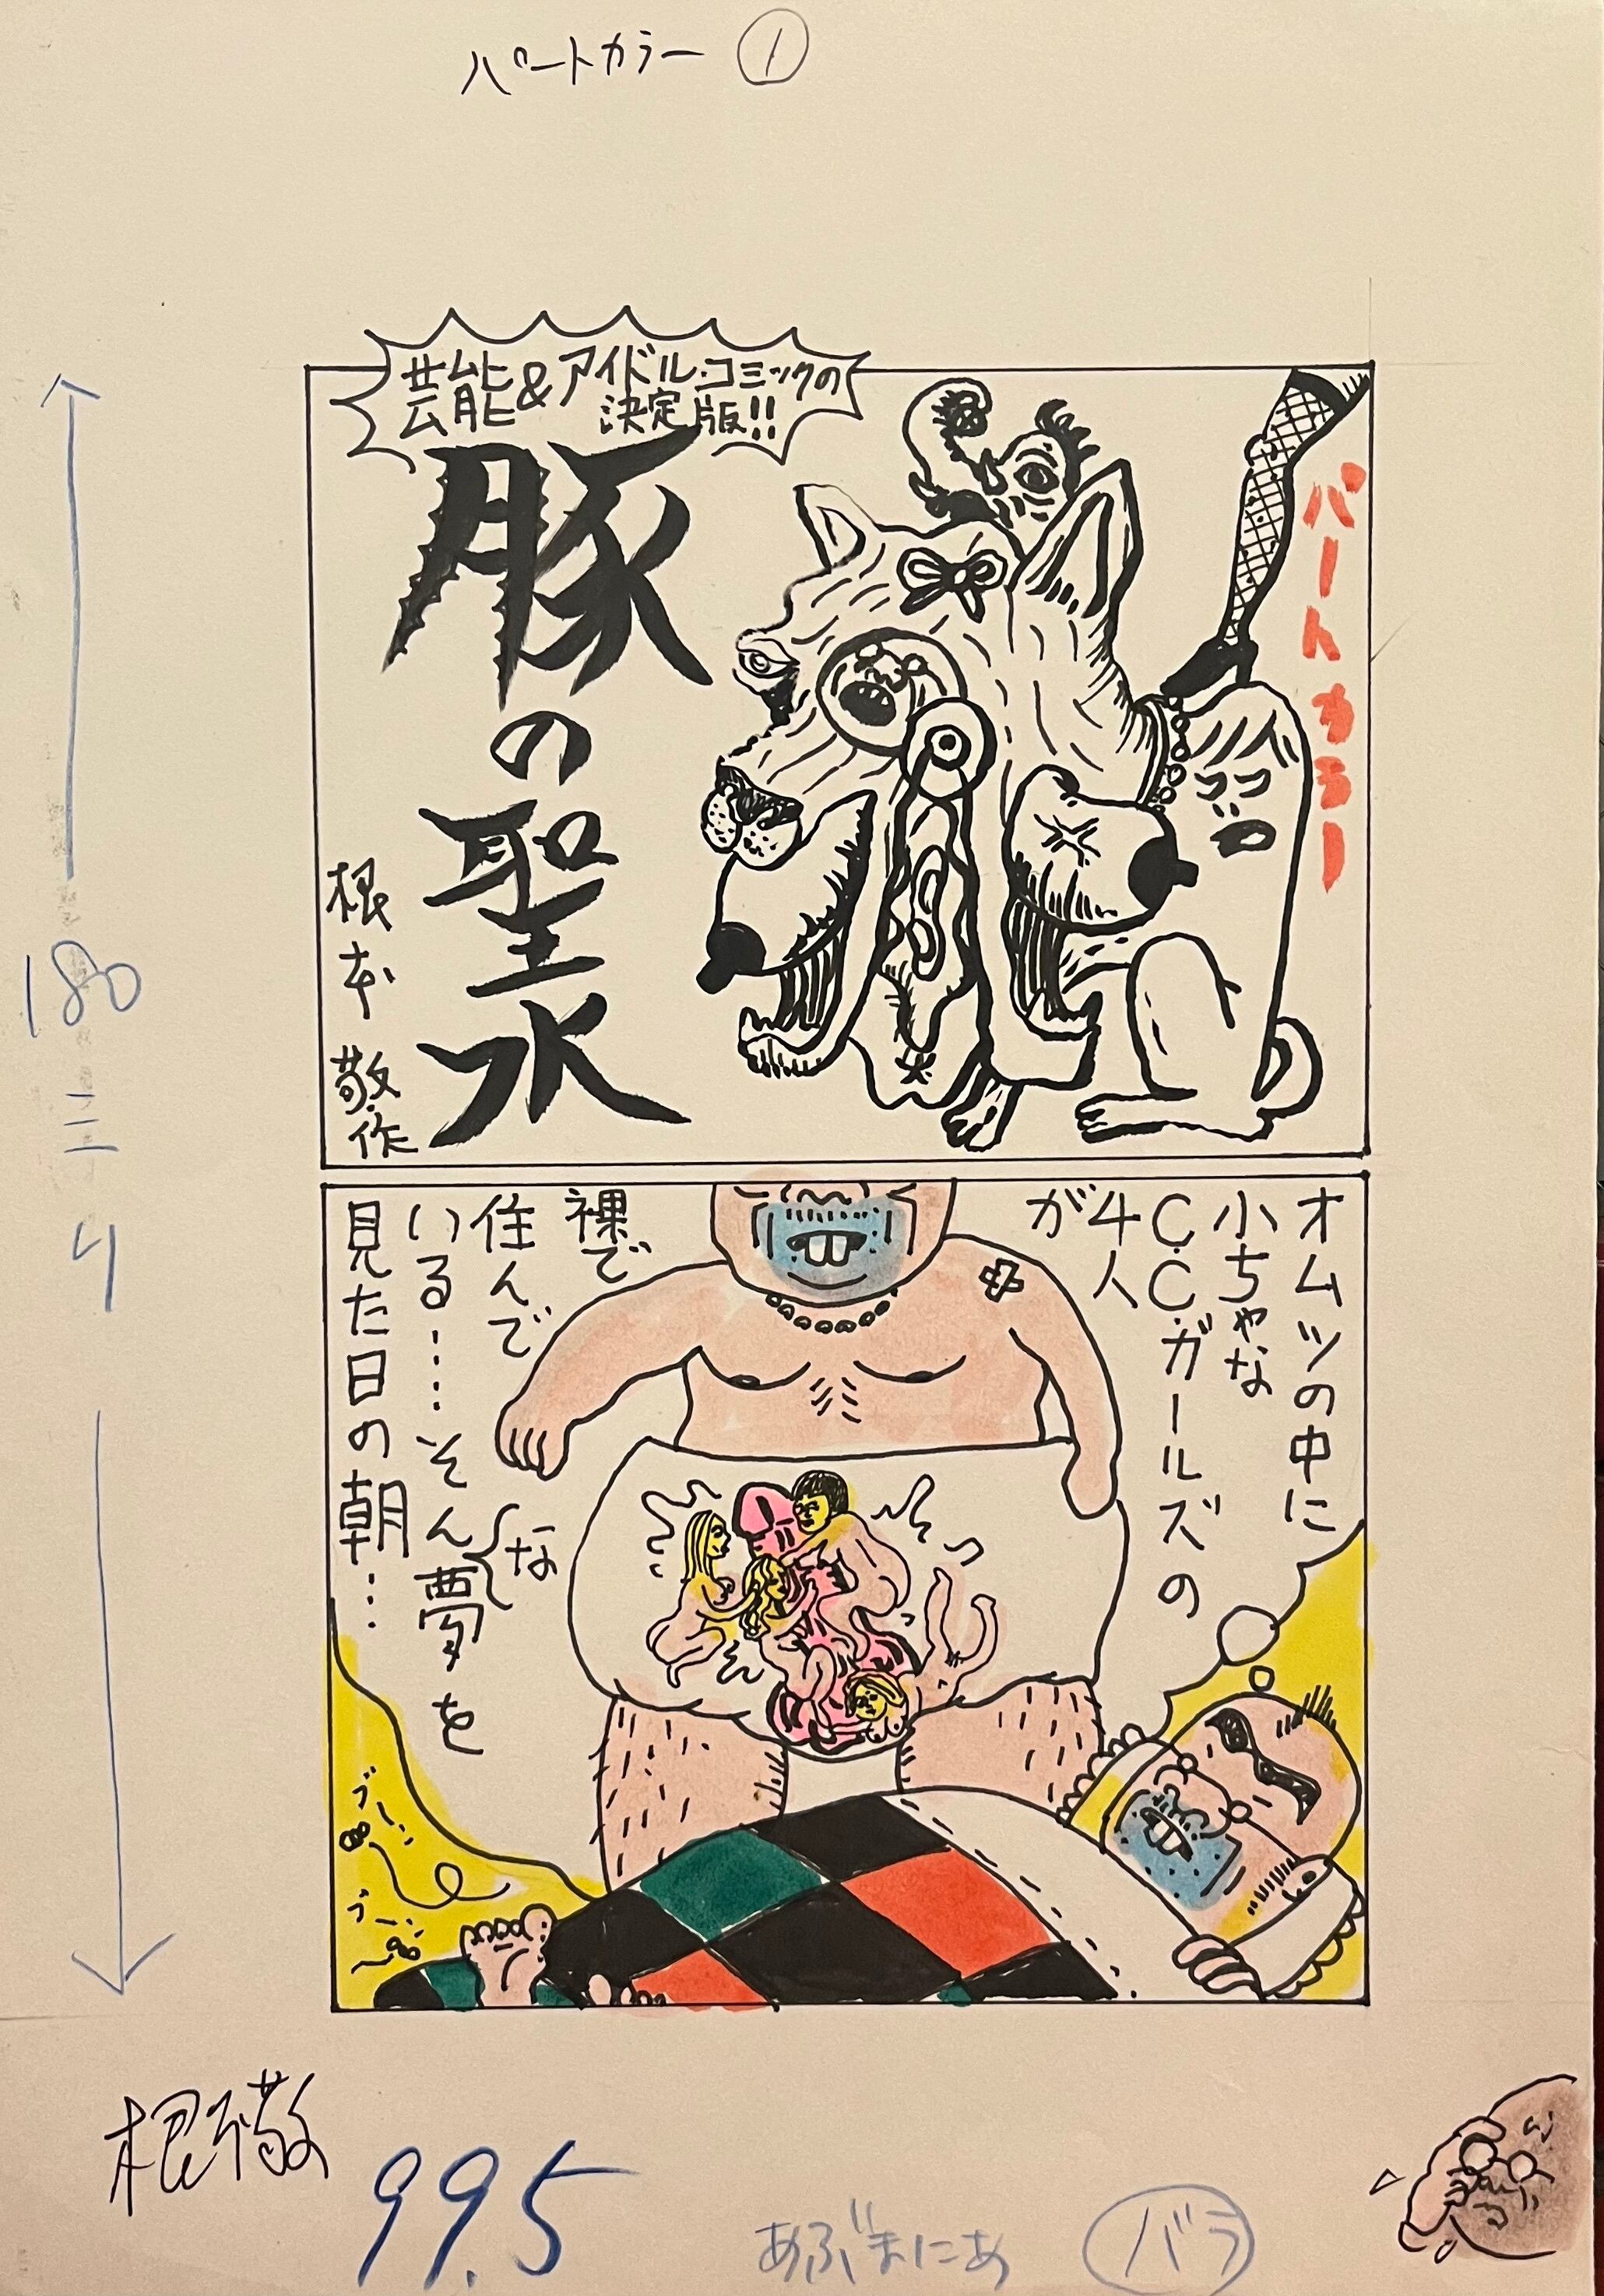 パートカラー ①
芸能&アイドル・コミックの
決定版!!
ぱーとからー
豚の聖水
根本敬・作
オムツの中に
小ちゃな
C.C.ガールズの
4人
が
裸で
住んで
いる……そんな夢を
見た日の朝…
ブーン
ブーン
180ミリ
根本敬
99.5
あぶまにあ
バラ